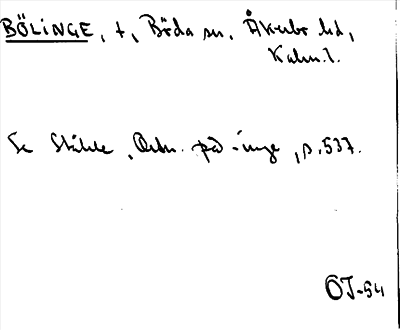 BÖLINGE, t, Böda sn, Åkerbo hd,
Kalm. l.
Se Ståhle, Ortn. på -inge, s. 537.
OJ-54